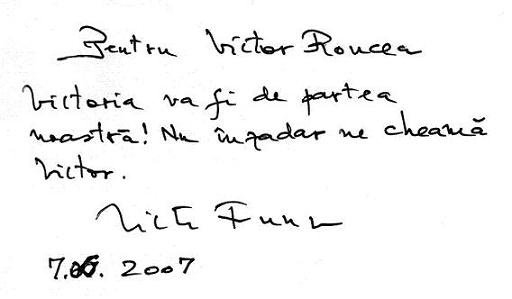 Pentru Victor Roncea
Victoria va fi de partea
noastră! Nu înzadar ne cheamă
Victor.
7.06. 2007